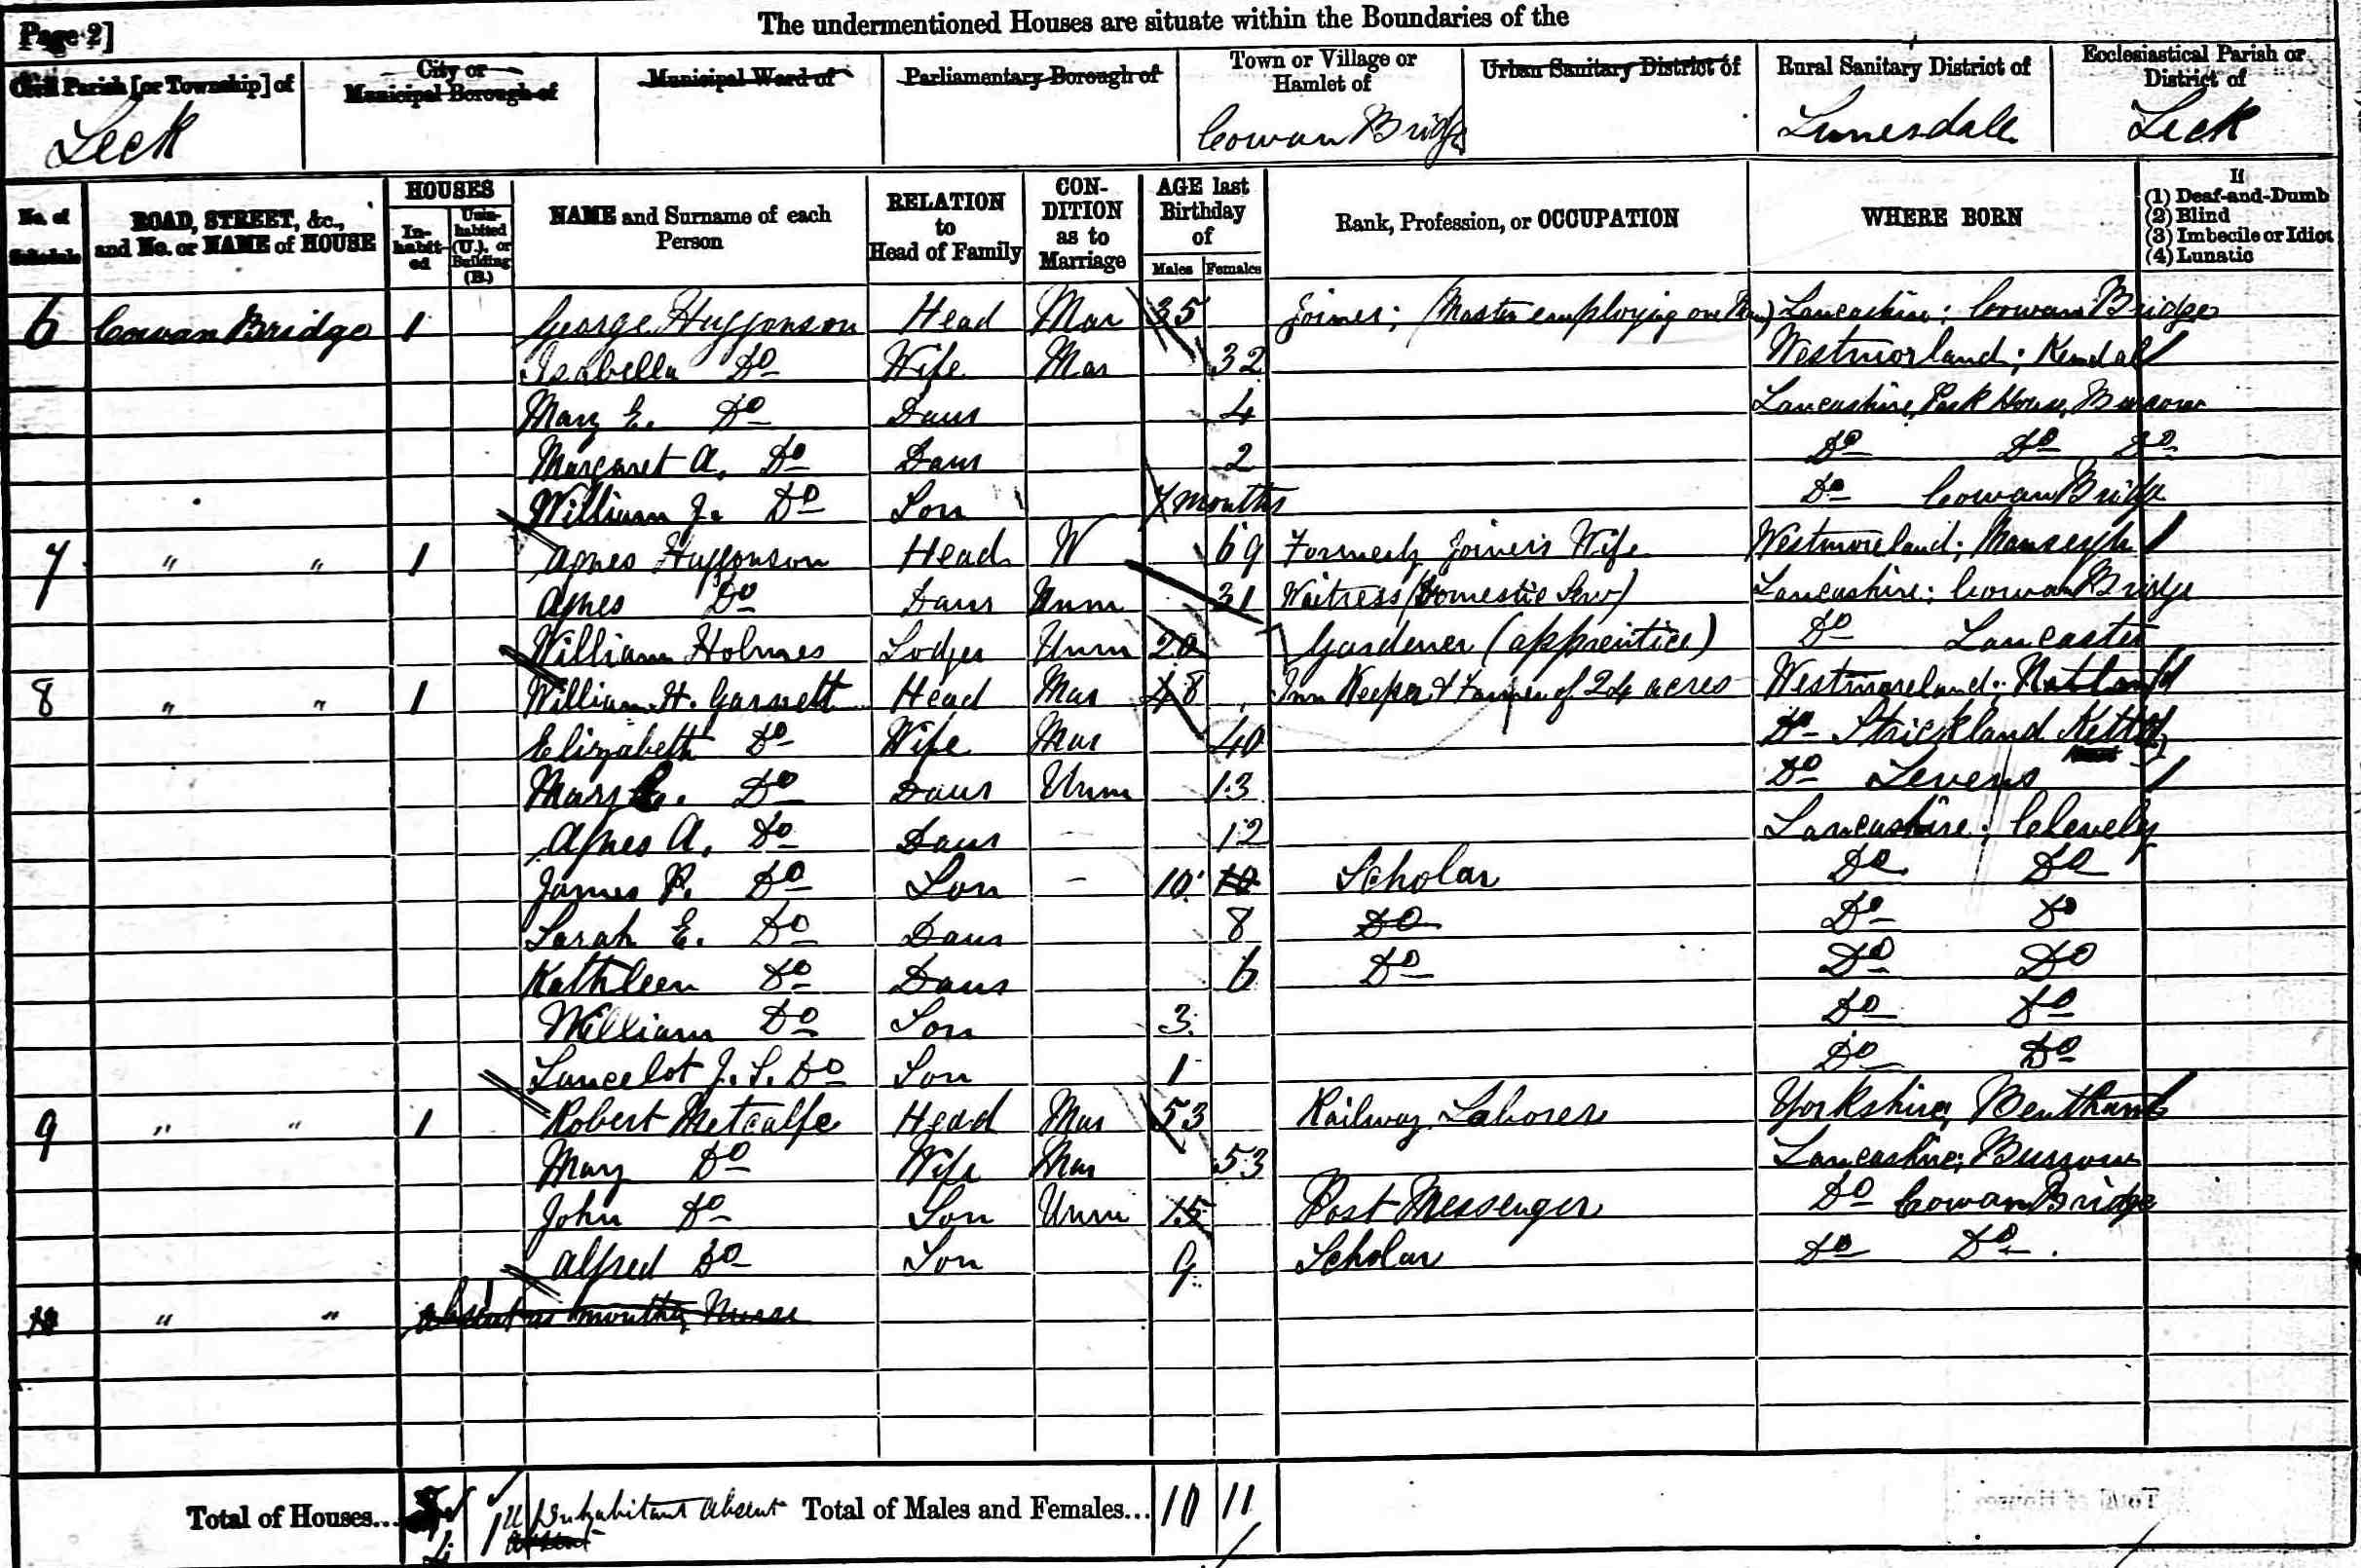 Page 2]
The undermentioned Houses are situate within the Boundaries of the
Civil Parish [or Township] of
City or Municipal Borough of
Municipal Ward of
Parliamentary Borough of
Town or Village or Hamlet of
Urban Sanitary District of
Rural Sanitary District of
Ecclesiastical Parish or District of
Leck Cowan Bridge Lunesdale Leck
No. of Schedule
ROAD, STREET, &c., and No. or NAME of HOUSE
HOUSES
In-habit-ed
Unin-habited (U.), or Building (B.)
NAME and Surname of each Person
RELATION to Head of Family
CON-DITION as to Marriage
AGE last Birthday of
Males Females
Rank, Profession, or OCCUPATION
WHERE BORN
If
(1) Deaf-and-Dumb
(2) Blind
(3) Imbecile or Idiot
(4) Lunatic
6 Cowan Bridge 1 George Huggonson Head Mar 35 Joiner; (Master employing one Man) Lancashire; Cowan Bridge
Isabella Do Wife Mar 32 Westmorland; Kendal
Mary E. Do Daur 4 Lancashire, House, Burrow
Margaret A. Do Daur 2 Do Do Do
William J. Do Son 7 months Do Cowan Bridge
7 " " 1 Agnes Huggonson Head W 69 Formerly Joiner's Wife Westmoreland; Mansergh
Agnes Do Daur Unm 31 Waitress (Domestic Serv) Lancashire; Cowan Bridge
William Holmes Lodger Unm 20 Gardener (apprentice) Do Lancaster
8 " " 1 William H. Garnett Head Mar 48 Inn Keeper & Farmer of 24 acres Westmoreland; Natland
Elizabeth Do Wife Mar 40 Do Strickland
Mary E. Do Daur Unm 13 Do Levens
Agnes A. Do Daur 12 Lancashire; Cleveley
James P. Do Son - 10 10 Scholar Do Do
Sarah E. Do Daur 8 Do Do Do
Kathleen Do Daur 6 Do Do Do
William Do Son 3 Do Do
Lancelot J. S. Do Son 1 Do Do
9 " " 1 Robert Metcalfe Head Mar 53 Railway Laborer Yorkshire, Bentham
Mary Do Wife Mar 53 Lancashire; Burrow
John Do Son Unm 15 Post Messenger Do Cowan Bridge
Alfred Do Son 9 Scholar Do Do
10 " " absent as monthly Nurse
Total of Houses... 4 1 U Inhabitant absent Total of Males and Females... 10 11